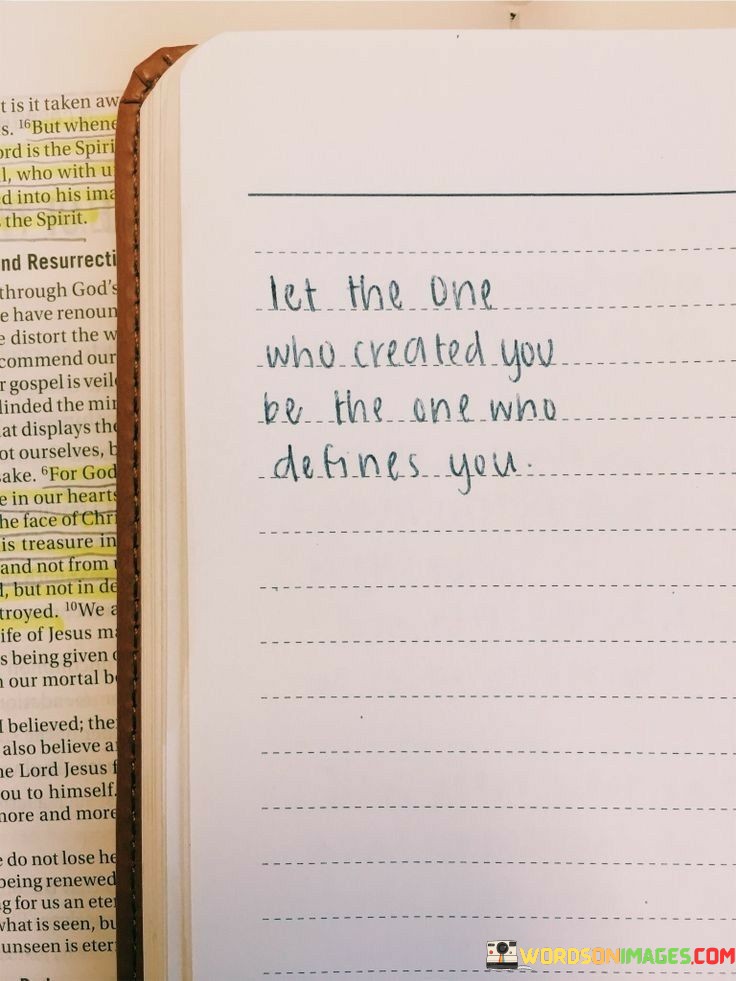 t is it taken aw
s. 16But whene
ord is the Spiri
l, who with u
d into his ima
the Spirit.
nd Resurrecti
through God's
e have renoun
e distort the w
commend our
r gospel is veil
linded the min
at displays the
ot ourselves, b
sake. 6For God
e in our hearts
he face of Chri
is treasure in
and not from
, but not in de
troyed. 10We a
ife of Jesus ma
s being given
n our mortal b
I believed; the
also believe a
he Lord Jesus f
ou to himself.
more and more
e do not lose he
being renewed
g for us an eter
what is seen, bu
unseen is eter
let the one
who created you
be the one who
defines you.
WORDSONIMAGES.COM